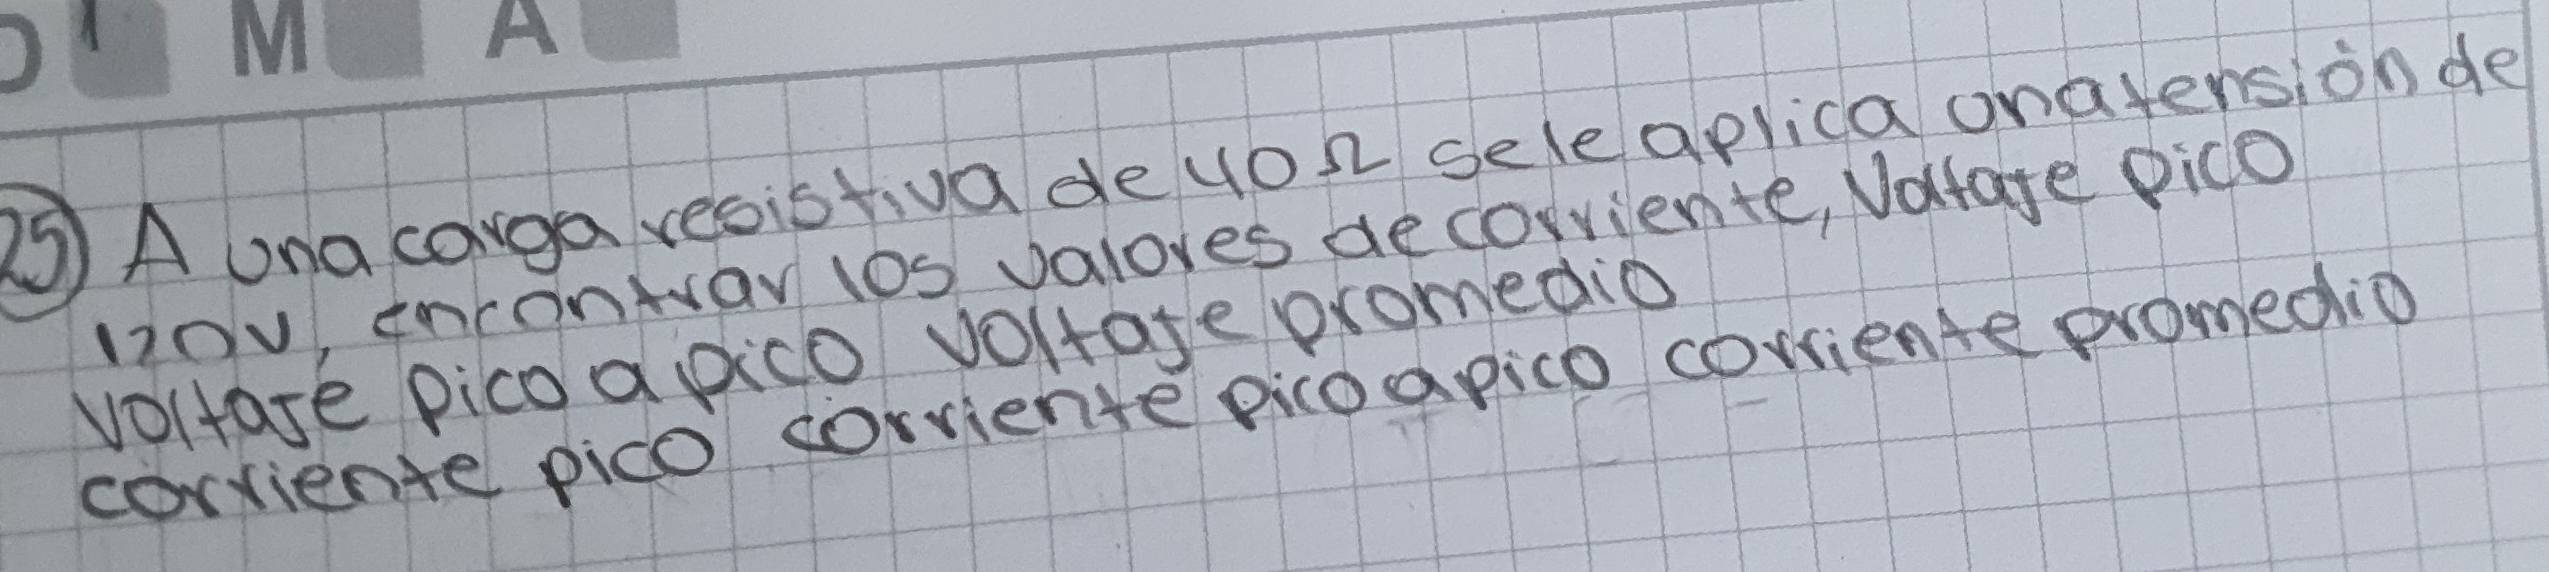 D 1 M A
25) A una carga resistiva de 40Ω se le aplica una tensión de
120V, encontrar los valores de corriente, Voltaje pico
voltaje pico a pico voltaje promedio
corriente pico corriente pico a pico corriente promedio